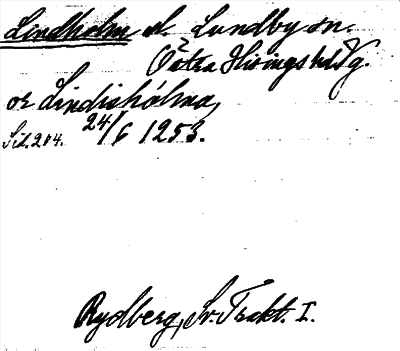 Lindholm d. Lundby sn.
Östra Hisings hd Vg.
or Lindishólma,
Sid. 204. 24/6 1253.
Rydberg, Sv. Trakt. I.